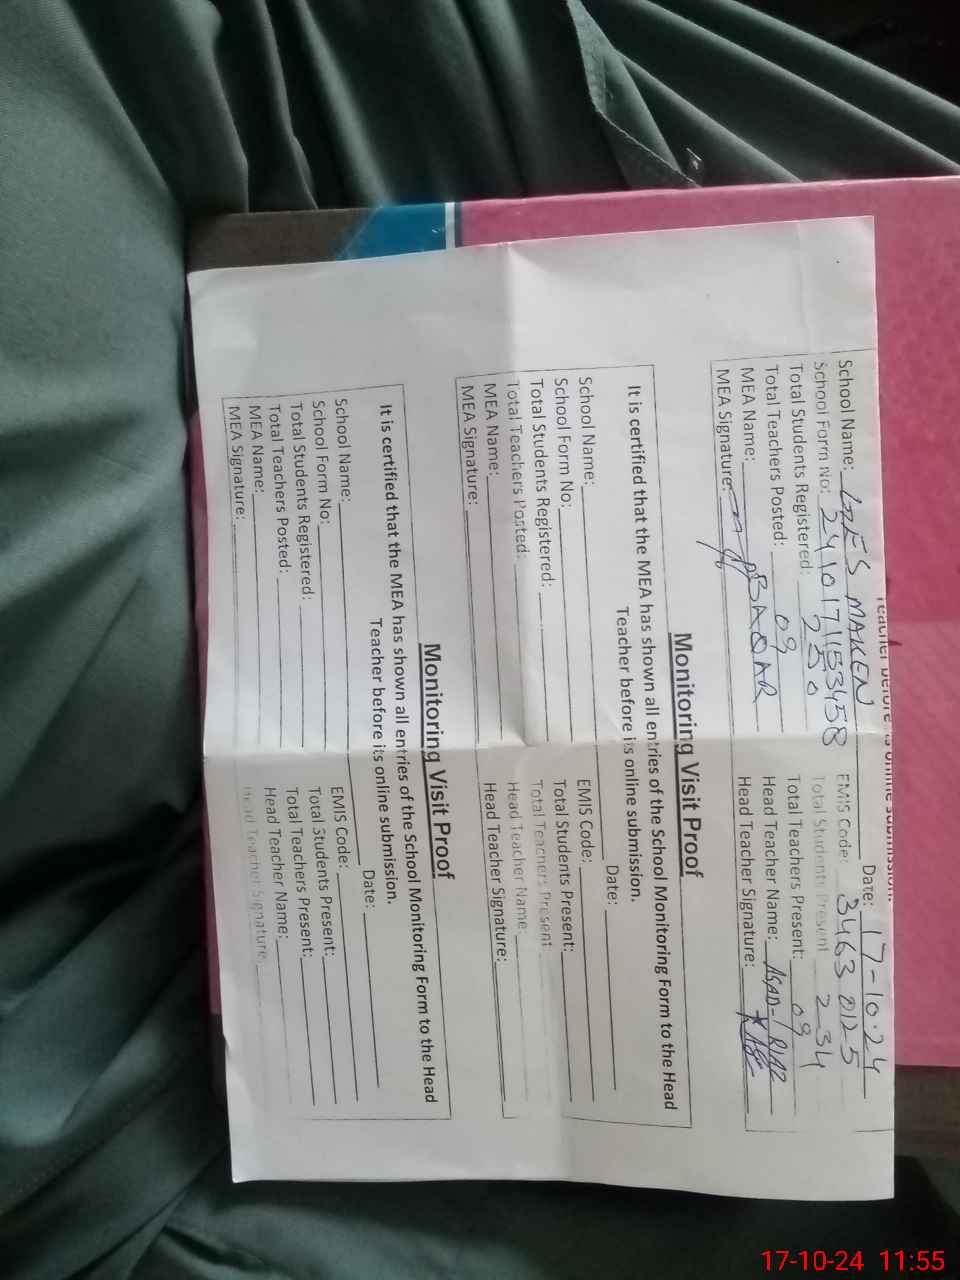 Teacher before its online submission.
Date: 17-10-24
School Name: GES MAKEN EMIS Code: 34630125
School Form No: 2410171153458 Total Students Present 234
Total Students Registered: 250 Total Teachers Present: 09
Total Teachers Posted: 09 Head Teacher Name: ASAD-RIAZ
MEA Name: BAQAR Head Teacher Signature:
MEA Signature:
Monitoring Visit Proof
It is certified that the MEA has shown all entries of the School Monitoring Form to the Head
Teacher before its online submission.
Date:
School Name: EMIS Code:
School Form No: Total Students Present:
Total Students Registered: Total Teachers Present
Total Teachers Posted: Head Teacher Name:
MEA Name: Head Teacher Signature:
MEA Signature:
Monitoring Visit Proof
It is certified that the MEA has shown all entries of the School Monitoring Form to the Head
Teacher before its online submission.
Date:
School Name: EMIS Code:
School Form No: Total Students Present:
Total Students Registered: Total Teachers Present:
Total Teachers Posted: Head Teacher Name:
MEA Name: Head Teacher Signature
MEA Signature:
17-10-24 11:55